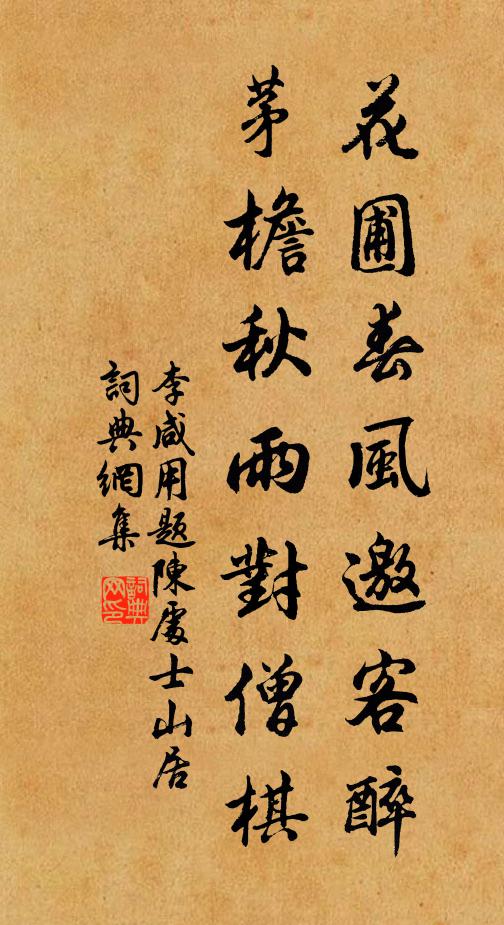 花圃春風邀客醉
茅檐秋雨對僧棋
李咸用題陳處士山居
詞典網集
詞典網印